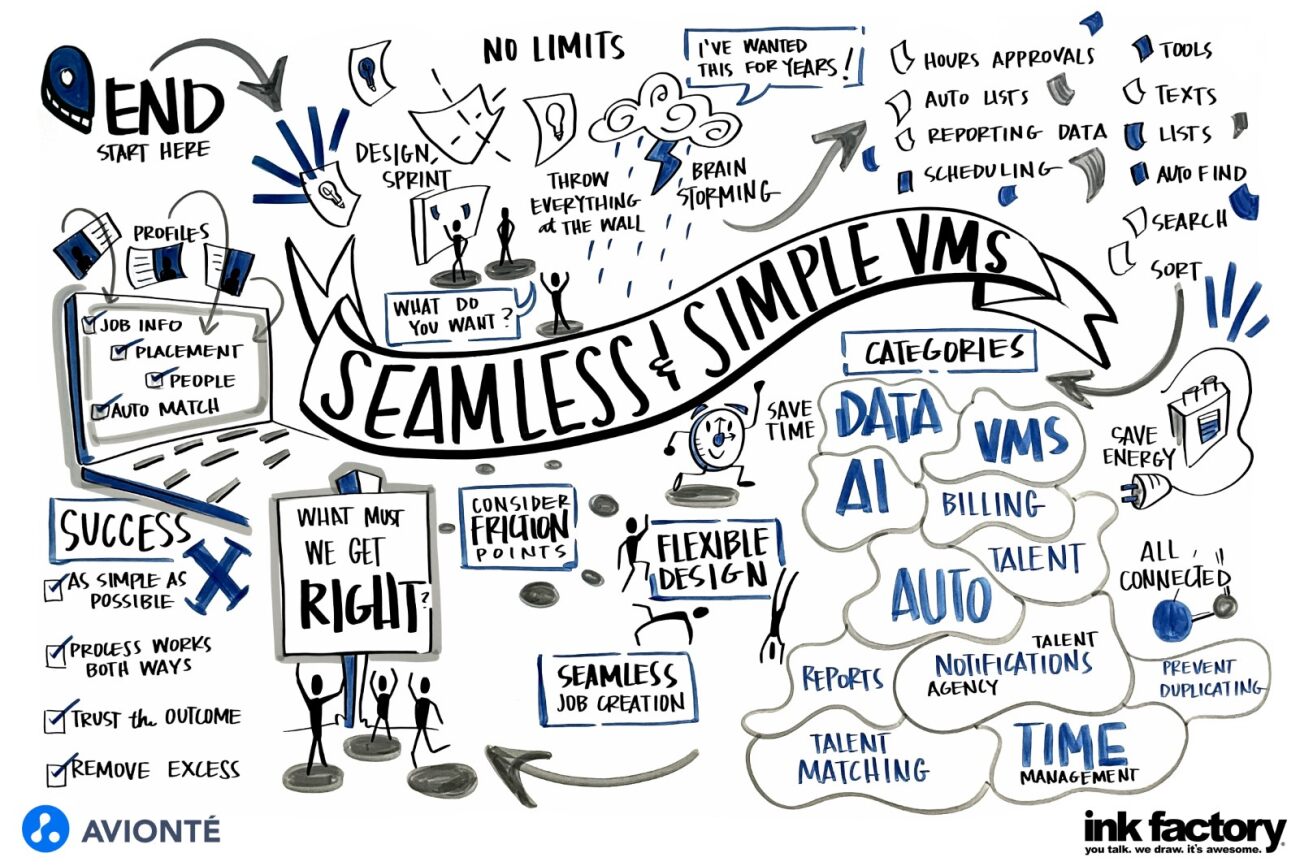 END
START HERE
NO LIMITS
DESIGN
SPRINT
THROW
EVERYTHING
at THE WALL
BRAIN
STORMING
I'VE WANTED
THIS FOR YEARS!
HOURS APPROVALS
AUTO LISTS
REPORTING DATA
SCHEDULING
TOOLS
TEXTS
LISTS
AUTO FIND
SEARCH
SORT
PROFILES
JOB INFO
PLACEMENT
PEOPLE
AUTO MATCH
WHAT DO
YOU WANT?
SEAMLESS & SIMPLE VMS
SAVE
TIME
CATEGORIES
DATA
VMS
AI
BILLING
TALENT
AUTO
REPORTS
TALENT
NOTIFICATIONS
AGENCY
PREVENT
DUPLICATING
TALENT
MATCHING
TIME
MANAGEMENT
SAVE
ENERGY
ALL
CONNECTED
SUCCESS
AS SIMPLE AS
POSSIBLE
PROCESS WORKS
BOTH WAYS
TRUST the OUTCOME
REMOVE EXCESS
WHAT MUST
WE GET
RIGHT?
CONSIDER
FRICTION
POINTS
FLEXIBLE
DESIGN
SEAMLESS
JOB CREATION
AVIONTÉ
ink factory
you talk. we draw. it's awesome.